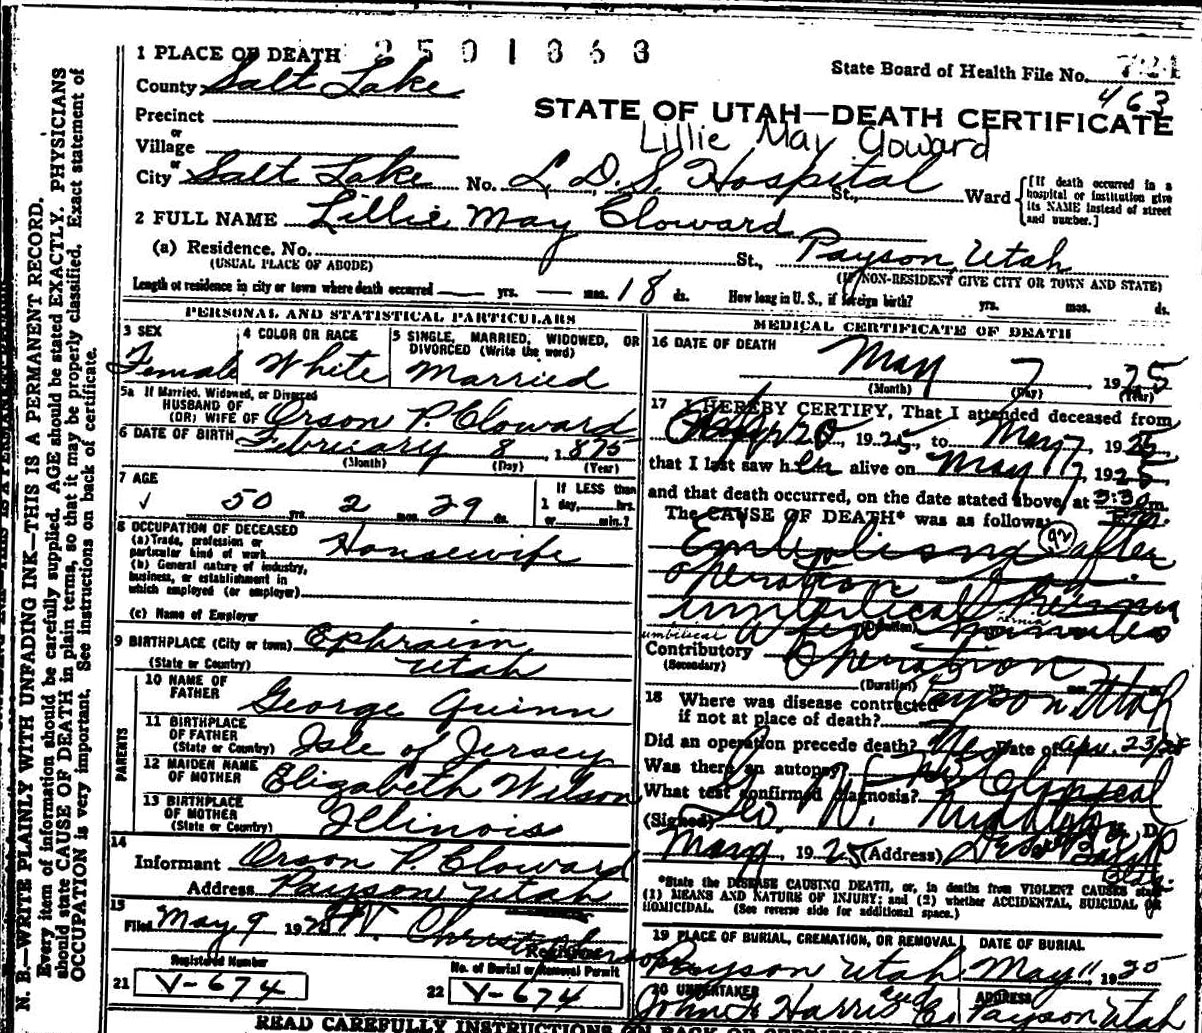 1 PLACE OF DEATH 2501863
State Board of Health File No. 721
463
County Salt Lake
STATE OF UTAH—DEATH CERTIFICATE
Precinct
Lillie May Cloward
or
Village
or
City Salt Lake No. L. D. S. Hospital St., Ward
[If death occurred in a hospital or institution give its NAME instead of street and number.]
2 FULL NAME Lillie May Cloward
(a) Residence. No. St., Payson, Utah
(USUAL PLACE OF ABODE) (IF NON-RESIDENT GIVE CITY OR TOWN AND STATE)
Length of residence in city or town where death occurred — yrs. — mos. 18 ds. How long in U. S., if foreign birth? yrs. mos. ds.
PERSONAL AND STATISTICAL PARTICULARS
3 SEX Female
4 COLOR OR RACE White
5 SINGLE, MARRIED, WIDOWED, OR DIVORCED (Write the word) Married
5a If Married, Widowed, or Divorced
HUSBAND OF
(OR) WIFE OF Orson P. Cloward
6 DATE OF BIRTH February 8, 1875
(Month) (Day) (Year)
7 AGE 50 yrs. 2 mos. 29 ds.
If LESS than
1 day, hrs.
or min.?
8 OCCUPATION OF DECEASED
(a) Trade, profession or
particular kind of work Housewife
(b) General nature of industry,
business, or establishment in
which employed (or employer)
(c) Name of Employer
9 BIRTHPLACE (City or town) Ephraim
(State or Country) Utah
PARENTS
10 NAME OF
FATHER George Quinn
11 BIRTHPLACE
OF FATHER
(State or Country) Isle of Jersey
12 MAIDEN NAME
OF MOTHER Elizabeth Wilson
13 BIRTHPLACE
OF MOTHER
(State or Country) Illinois
14
Informant Orson P. Cloward
Address Payson Utah
15
Filed May 9 192 W. Christopherson
Registrar
Registered Number
21 V-674
No. of Burial or Removal Permit
22 V-674
MEDICAL CERTIFICATE OF DEATH
16 DATE OF DEATH
May 7, 1925
(Month) (Day) (Year)
17 I HEREBY CERTIFY, That I attended deceased from
1925, to May 7, 1925
that I last saw her alive on May 7 1925
and that death occurred, on the date stated above, at 3:30 m.
The CAUSE OF DEATH* was as follows:
Embolism 92 after
operation for
umbilical hernia
hernia
(Duration) Few minutes
umbilical
Contributory Operation
(Secondary)
(Duration)
18 Where was disease contracted
if not at place of death? Payson Utah
Did an operation precede death? Yes Date of Apr. 23/25
Was there an autopsy? No
What test confirmed diagnosis? Clinical
(Signed) Geo. W. Middleton M. D.
May 1925 (Address)
*State the DISEASE CAUSING DEATH, or, in deaths from VIOLENT CAUSES state
(1) MEANS AND NATURE OF INJURY; and (2) whether ACCIDENTAL, SUICIDAL OR
HOMICIDAL. (See reverse side for additional space.)
19 PLACE OF BURIAL, CREMATION, OR REMOVAL Payson Utah
DATE OF BURIAL May 11 1925
20 UNDERTAKER John Harris and Co
ADDRESS Payson Utah
READ CAREFULLY INSTRUCTIONS ON BACK OF CERTIFICATE
N. B.—WRITE PLAINLY WITH UNFADING INK—THIS IS A PERMANENT RECORD.
Every item of information should be carefully supplied. AGE should be stated EXACTLY. PHYSICIANS
should state CAUSE OF DEATH in plain terms, so that it may be properly classified. Exact statement of
OCCUPATION is very important. See instructions on back of certificate.